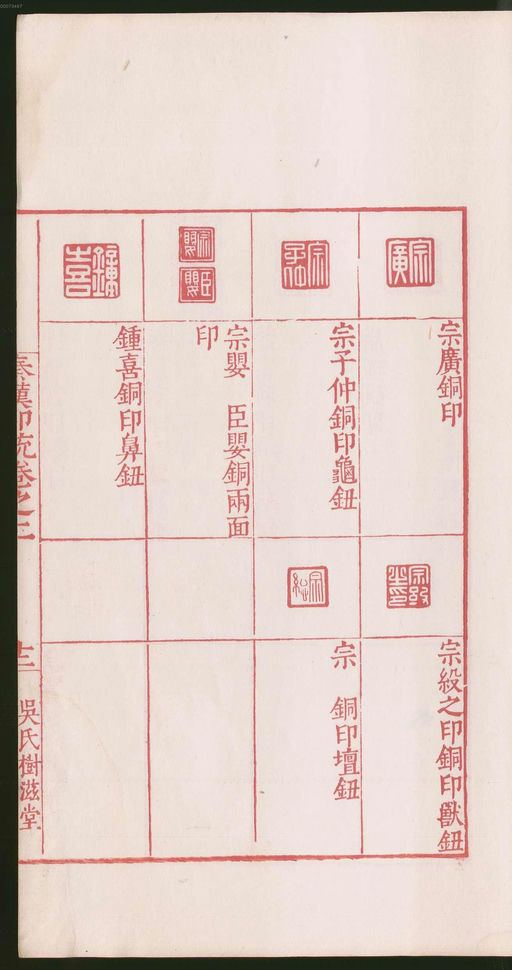 宗廣
宗廣銅印
宗子仲銅印龜鈕
宗嬰
臣嬰
宗嬰　臣嬰銅兩面
印
鍾喜
鍾喜銅印鼻鈕
宗綬之印銅印獸鈕
宗　銅印壇鈕
秦漢印統卷之三
吳氏樹滋堂
00073487